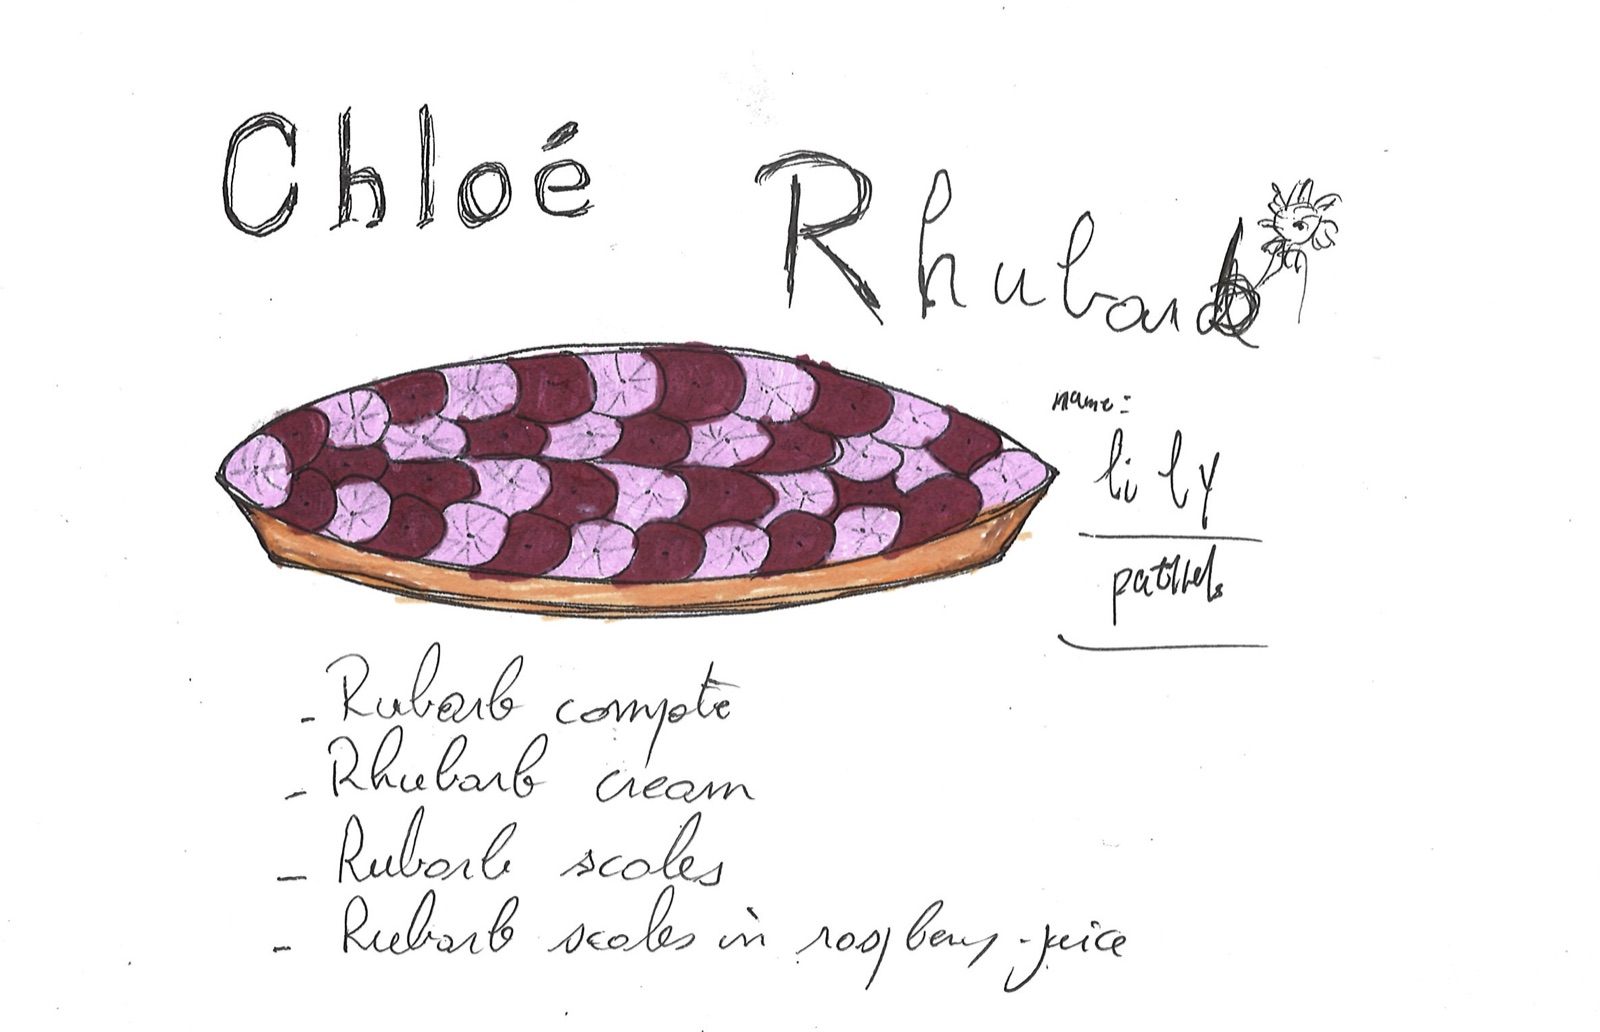 Chloé
Rhubarb
name:
lily
- Rubarb compote
- Rhubarb cream
- Rubarb scales
- Rubarb scales in raspberry-juice